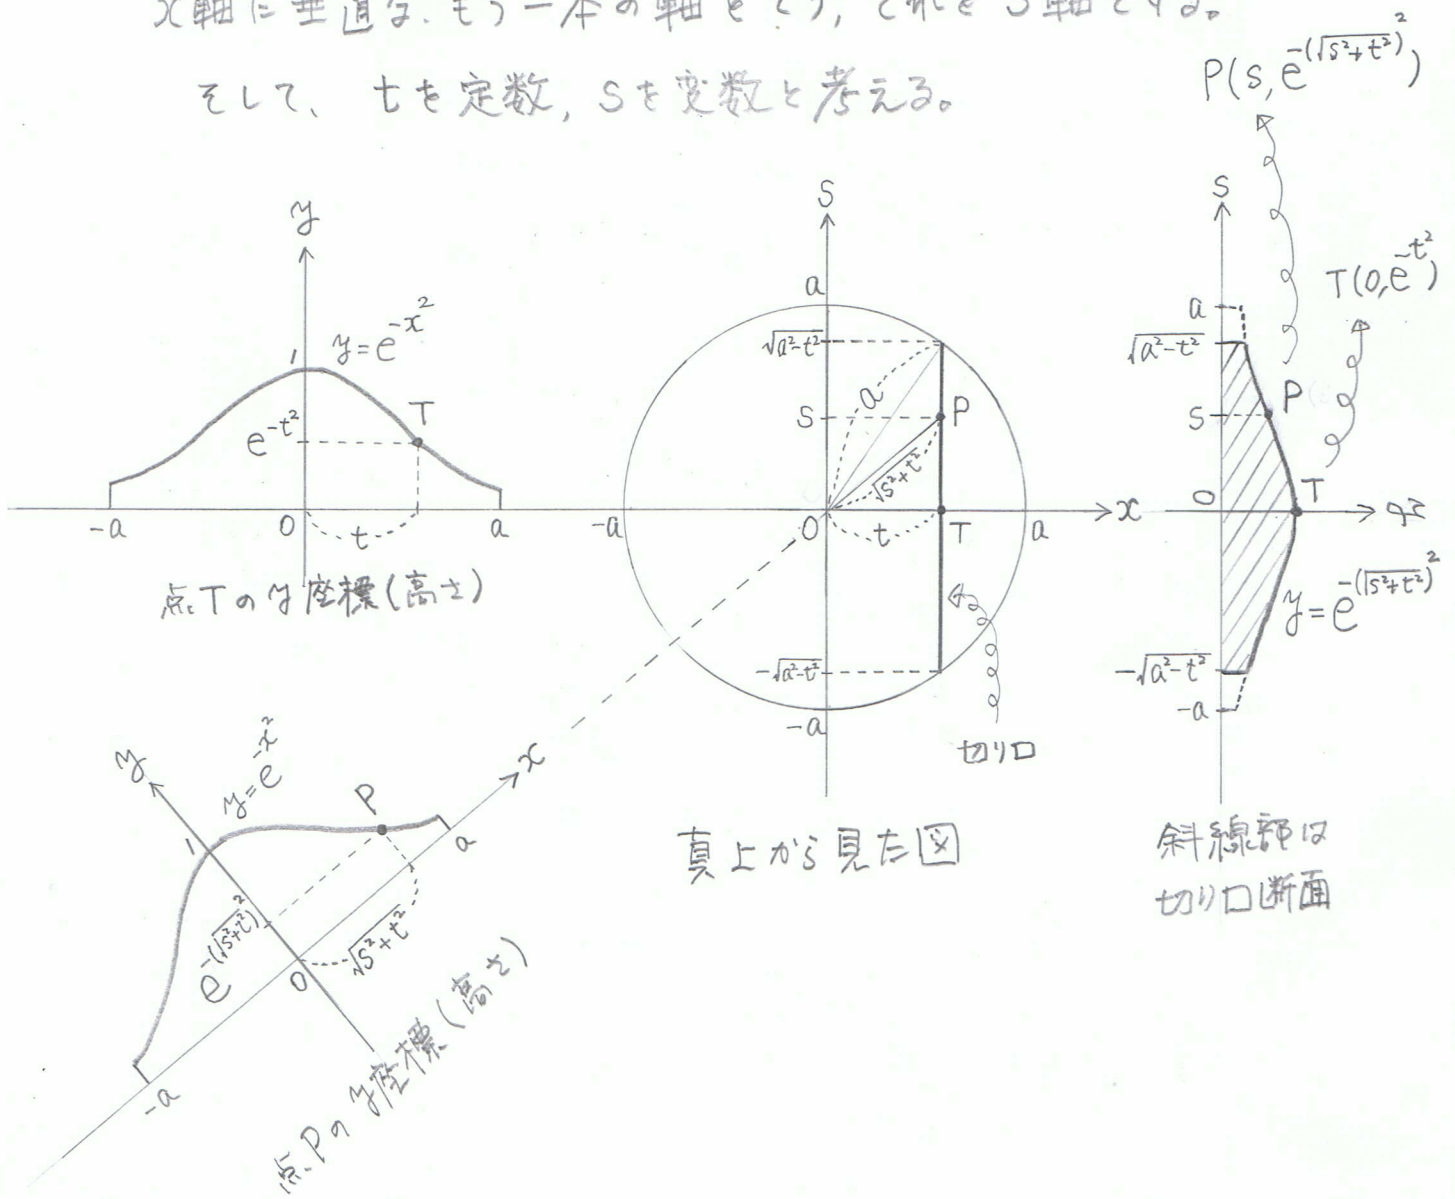 x軸に垂直な、もう一本の軸をとり、これをS軸とする。
そして、tを定数,Sを変数と考える。
P(s,e^{-(√(s²+t²))²})
y
1
y=e^{-x²}
e^{-t²}
T
-a
O
t
a
点Tのy座標(高さ)
S
a
√(a²-t²)
a
S
P
√(s²+t²)
-a
O
t
T
a
x
-√(a²-t²)
-a
切り口
真上から見た図
S
T(0,e^{-t²})
a
√(a²-t²)
P
S
O
T
y
y=e^{-(√(s²+t²))²}
-√(a²-t²)
-a
斜線部は
切り口断面
y
y=e^{-x²}
P
x
1
a
e^{-(√(s²+t²))²}
√(s²+t²)
O
-a
点Pのy座標(高さ)